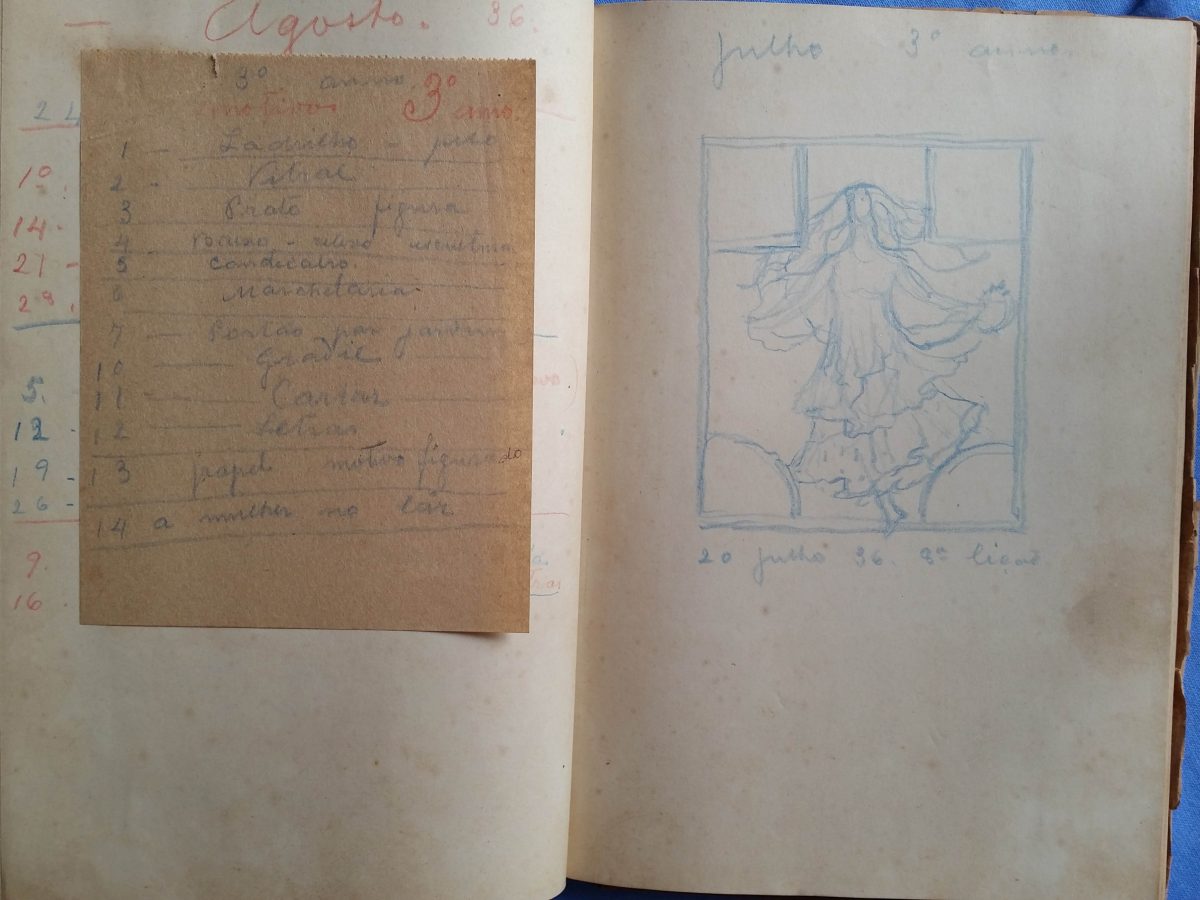 Agosto. 36.
3º anno.
motivos 3º anno.
1 - Ladrilho -
2 - Vitral
3 Prato figura
4 Baixo - relevo
5 Candelabro.
6 Marchetaria.
7 - Portão para jardim
10 - Gradil
11 - Cartaz
12 - Letras
13 papel motivo figurado
14 a mulher no lar
24
1º.
14-
21 -
28.
5.
12 -
19 -
26 -
9.
16.
julho 3º anno.
20 julho 36. 8ª lição